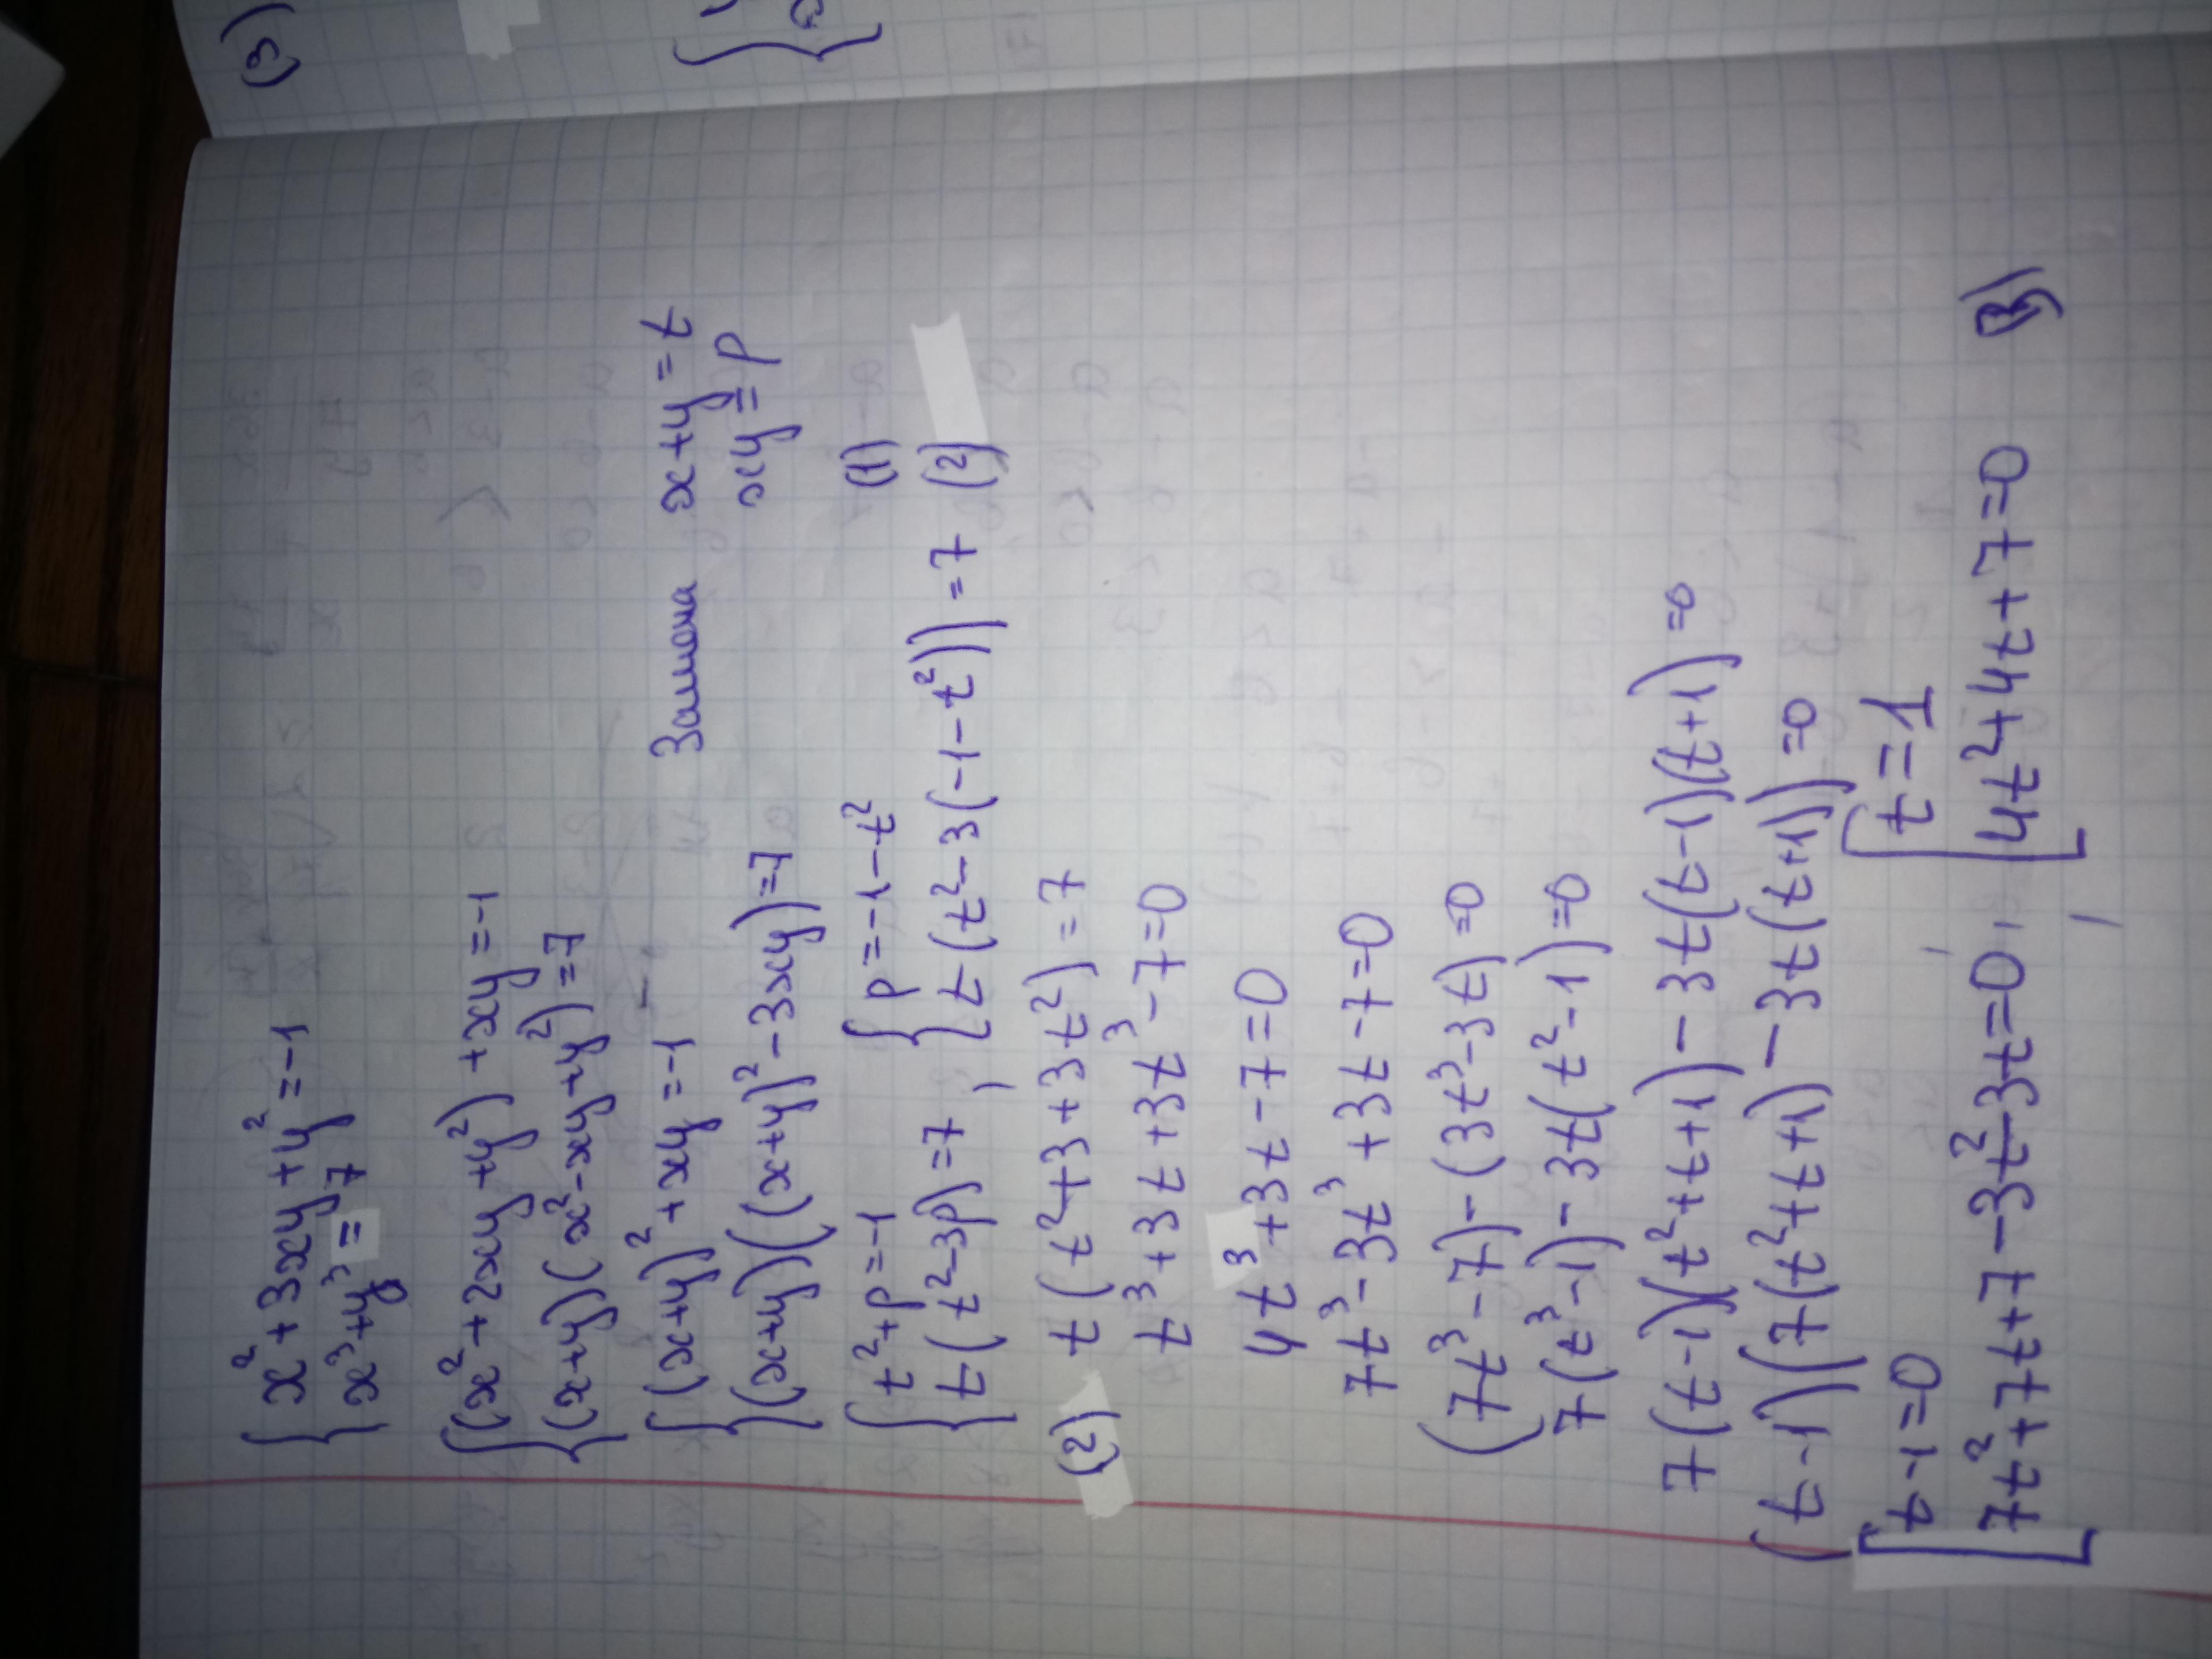 { x² + 3xy + y² = -1
{ x³ + y³ = 7
{ (x² + 2xy + y²) + xy = -1
{ (x+y)(x² - xy + y²) = 7
{ (x+y)² + xy = -1 Замена x+y = t
{ (x+y)((x+y)² - 3xy) = 7 xy = p
{ t² + p = -1 { p = -1 - t² (1)
{ t(t² - 3p) = 7 , { t(t² - 3(-1 - t²)) = 7 (2)
(2) t(t² + 3 + 3t²) = 7
t³ + 3t + 3t³ - 7 = 0
4t³ + 3t - 7 = 0
7t³ - 3t³ + 3t - 7 = 0
(7t³ - 7) - (3t³ - 3t) = 0
7(t³ - 1) - 3t(t² - 1) = 0
7(t-1)(t² + t + 1) - 3t(t-1)(t+1) = 0
(t-1)(7(t² + t + 1) - 3t(t+1)) = 0
[ t-1 = 0 , [ t = 1
[ 7t² + 7t + 7 - 3t² - 3t = 0 , [ 4t² + 4t + 7 = 0 (3)
(3)